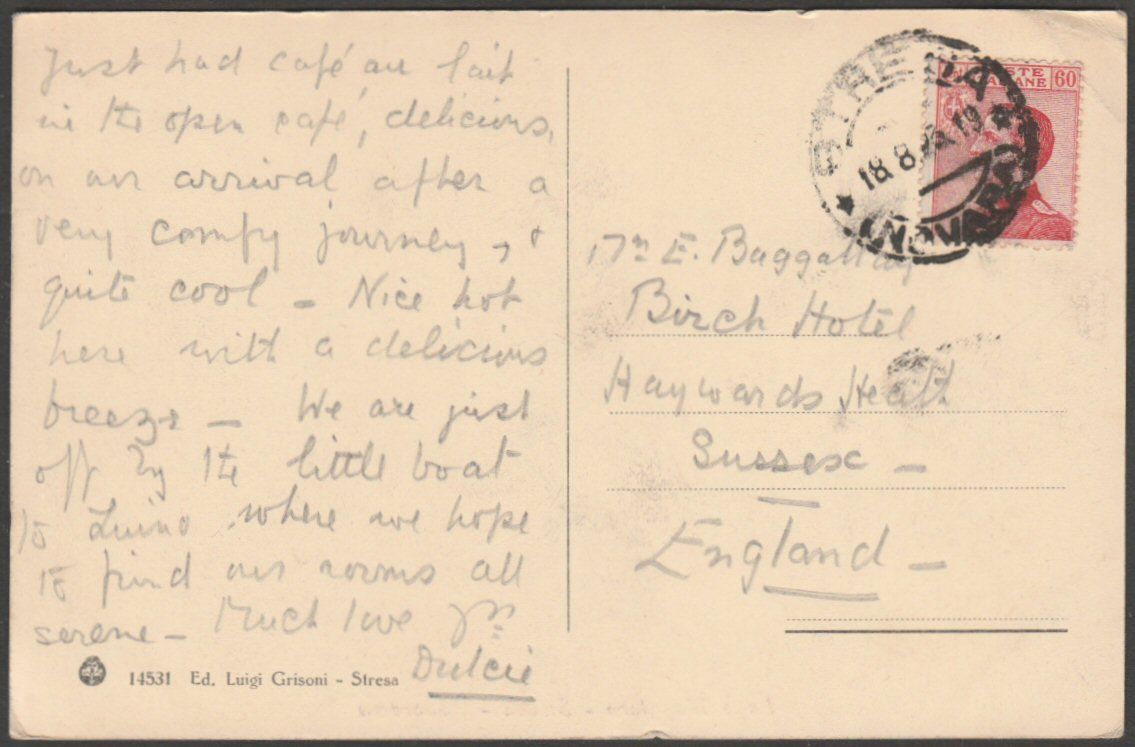 Just had café au lait
in the open café, delicious,
on our arrival after a
very comfy journey, &
quite cool – Nice hot
here with a delicious
breeze – We are just
off by the little boat
to Luino where we hope
to find our rooms all
serene – Much love yrs
Dulcie
14531 Ed. Luigi Grisoni - Stresa
STRESA
18.8. 19
(NOVARA)
POSTE
ITALIANE
60
E. Baggallay
Birch Hotel
Haywards Heath
Sussex –
England –